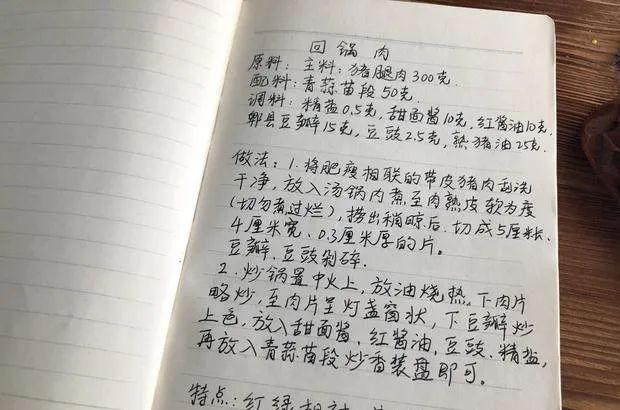 回锅肉
原料：主料：猪腿肉300克.
配料：青蒜苗段50克.
调料：精盐0.5克,甜面酱10克,红酱油10克,
郫县豆瓣15克,豆豉2.5克,熟猪油25克.
做法：1.将肥瘦相联的带皮猪肉刮洗
干净,放入汤锅内煮至肉熟皮软为度
(切勿煮过烂),捞出稍晾后.切成5厘米长、
4厘米宽、0.3厘米厚的片。
豆瓣、豆豉剁碎.
2.炒锅置中火上,放油烧热,下肉片
略炒,至肉片呈灯盏窝状,下豆瓣炒
上色,放入甜面酱、红酱油、豆豉、精盐,
再放入青蒜苗段炒香装盘即可。
特点：红绿相